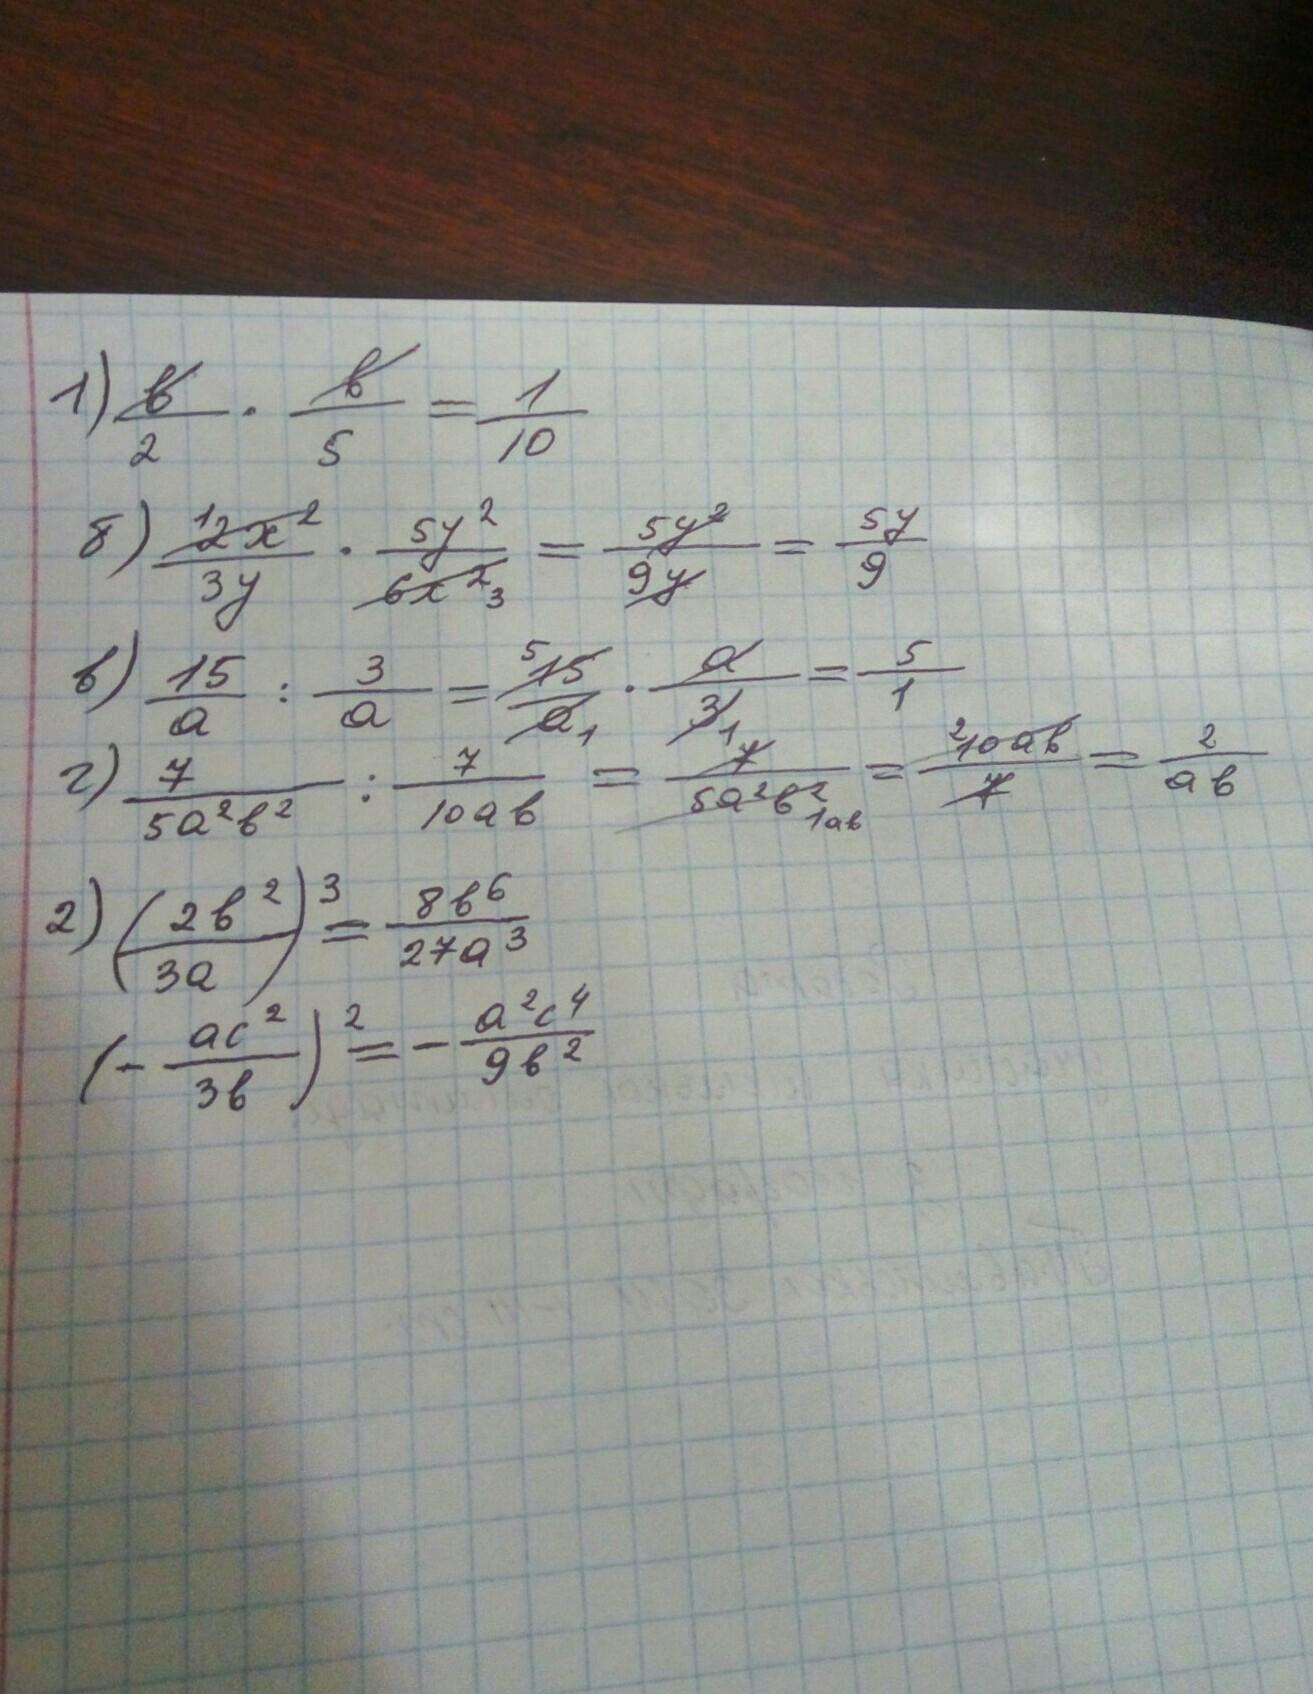 1) в/2 · в/5 = 1/10
б) 12x²/3y · 5y²/6x² 3 = 5y²/9y = 5y/9
в) 15/a : 3/a = 5 15/a 1 · a/3 1 = 5/1
г) 7/5a²в² : 7/10aв = 7/5a²в² 1aв = 2 10aв/7 = 2/aв
2) (2в²/3a)³ = 8в⁶/27a³
(- ac²/3в)² = - a²c⁴/9в²